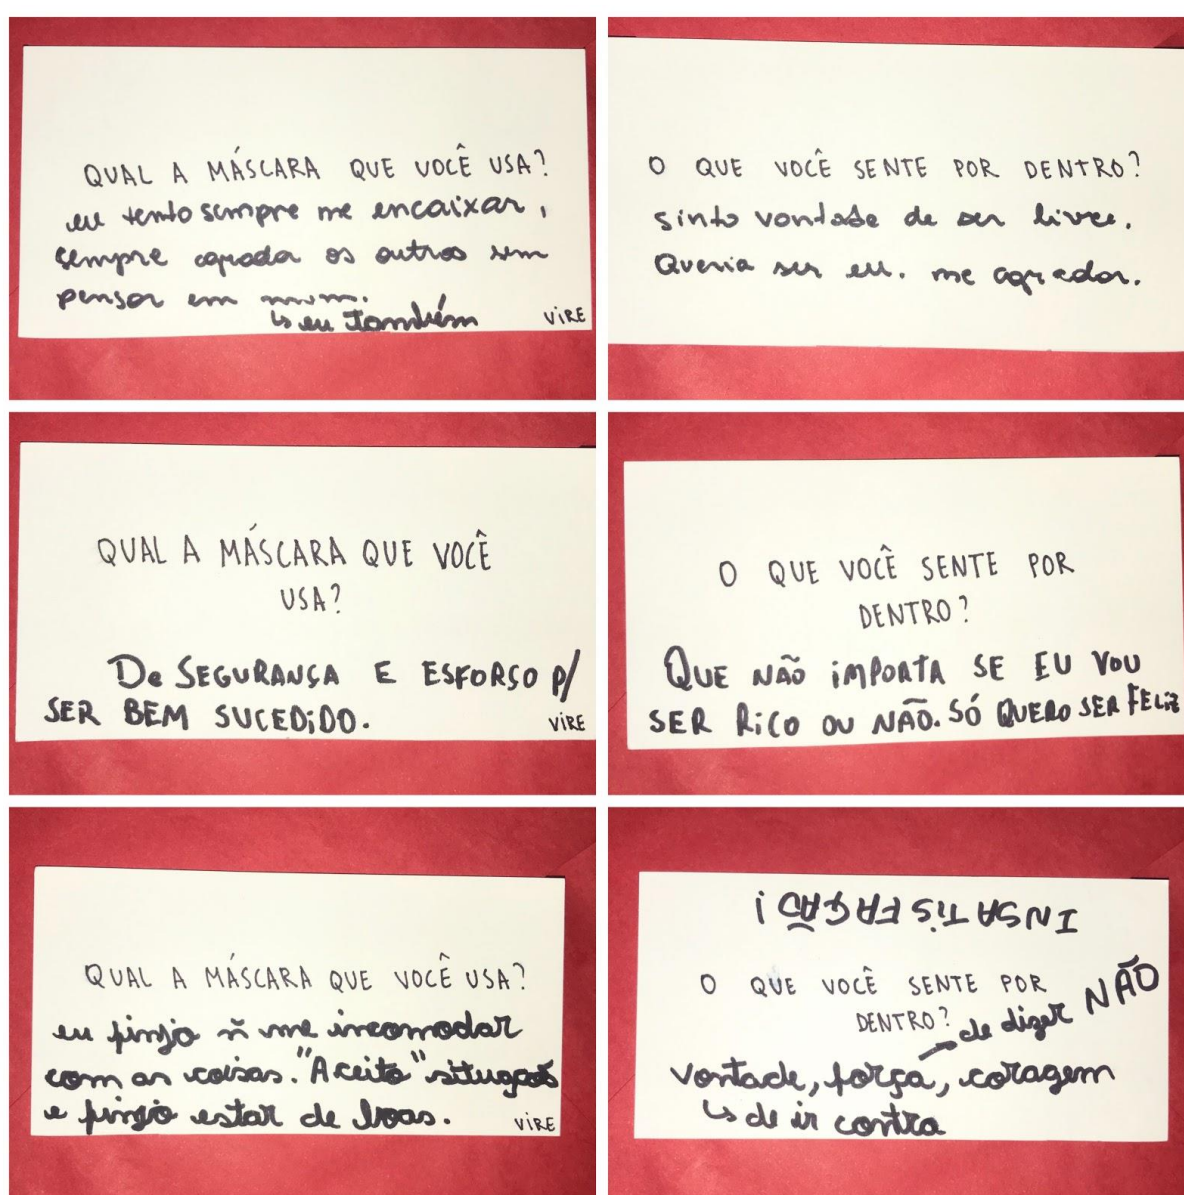 QUAL A MÁSCARA QUE VOCÊ USA?
eu tento sempre me encaixar,
sempre agrada os outros sem
pensar em mim.
↳ eu também
VIRE
O QUE VOCÊ SENTE POR DENTRO?
sinto vontade de ser livre.
Queria ser eu. me agradar.
QUAL A MÁSCARA QUE VOCÊ
USA?
De SEGURANÇA E ESFORSO p/
SER BEM SUCEDIDO.
VIRE
O QUE VOCÊ SENTE POR
DENTRO?
QUE NÃO iMPORTA SE EU VOU
SER RiCO OU NÃO. SÓ QUERO SER FELiZ
QUAL A MÁSCARA QUE VOCÊ USA?
eu finjo ñ me incomodar
com as coisas. "Aceito" situações
e finjo estar de boas.
VIRE
INSATiSFAÇÃO!
O QUE VOCÊ SENTE POR
DENTRO?
→ de dizer NÃO
vontade, força, coragem
↳ de ir contra